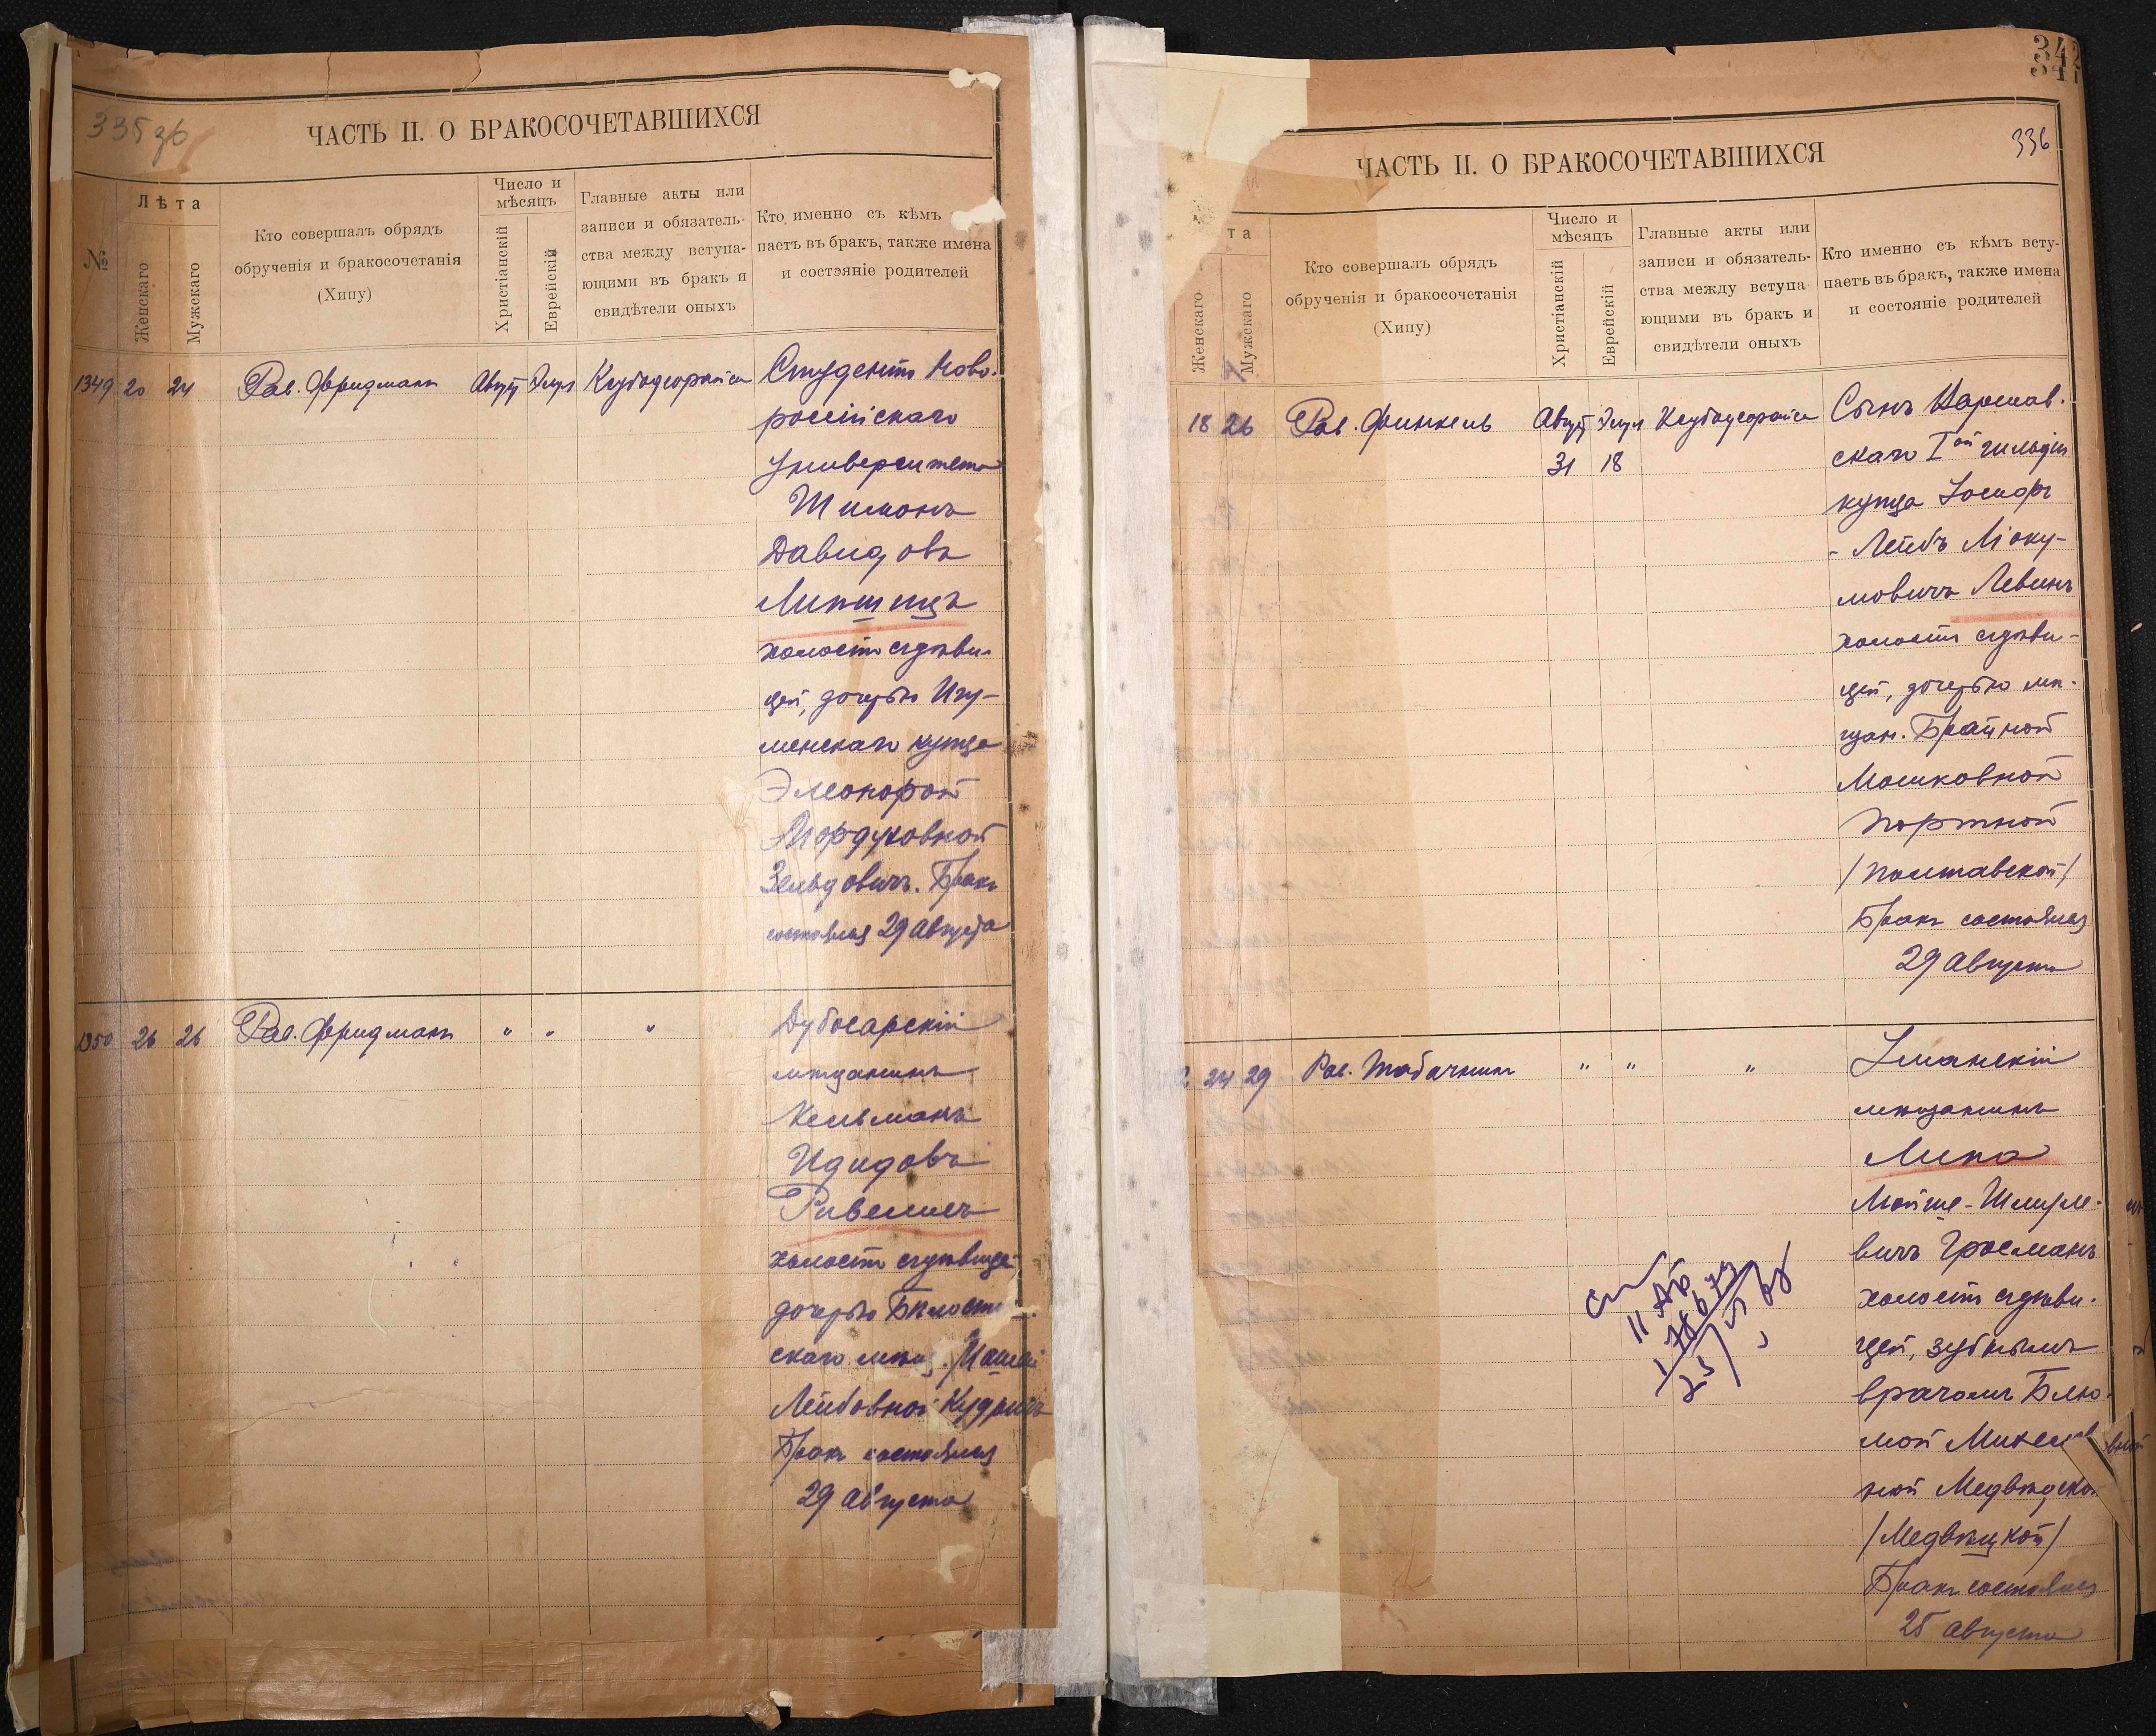 335 зв
ЧАСТЬ II. О БРАКОСОЧЕТАВШИХСЯ
№
Лѣта
Женскаго
Мужскаго
Кто совершалъ обрядъ
обрученія и бракосочетанія
(Хипу)
Число и
мѣсяцъ
Христіанскій
Еврейскій
Главные акты или
записи и обязатель-
ства между вступа-
ющими въ бракъ и
свидѣтели оныхъ
Кто именно съ кѣмъ
паетъ въ бракъ, также имена
и состэяніе родителей
1349 20 24 Рав. Фридманъ Август Элул Ксубодеорайса
Студентъ Ново-
россійскаго
Университета
Шимонъ
Давидовъ
Липшицъ
холостъ съ дѣви-
цей, дочерью Игу-
менскаго купца
Элеонорой
Мордуховной
Зельдовичъ. Бракъ
состоялся 29 Августа
1350 26 26 Рав. Фридманъ " " "
Дубосарскій
мѣщанинъ
Кельманъ
Идидовъ
Ривелисъ
холостъ съ дѣвицей
дочерью Бѣлост
скаго мѣщ.
Лейбовной
Бракъ состоялся
29 августа
342
341
336
ЧАСТЬ II. О БРАКОСОЧЕТАВШИХСЯ
та
Женскаго
Мужскаго
Кто совершалъ обрядъ
обрученія и бракосочетанія
(Хипу)
Число и
мѣсяцъ
Христіанскій
Еврейскій
Главные акты или
записи и обязатель-
ства между вступа
ющими въ бракъ и
свидѣтели оныхъ
Кто именно съ кѣмъ всту-
паетъ въ бракъ, также имена
и состояніе родителей
18 26 Рав. Финкель Август Элул Ксубодеорайса
31 18
Сынъ Варшав-
скаго Iой гильдіи
купца Іосифъ
- Лейбъ Міоку-
мовичъ Левинъ
холостъ съ дѣви-
цей, дочерью мѣ-
щан. Брайной
Мошковной
Портной
/Полтавской/
Бракъ состоялся
29 августа
2 24 29 Рав. Табачникъ " " "
Уманскій
мѣщанинъ
Липа
Мойше-Шмуле-
вичъ Гросманъ
холостъ съ дѣви-
цей, зубнымъ
врачомъ Блю-
мой
ной
/Медвѣцкой/
Бракъ состоялся
25 августа